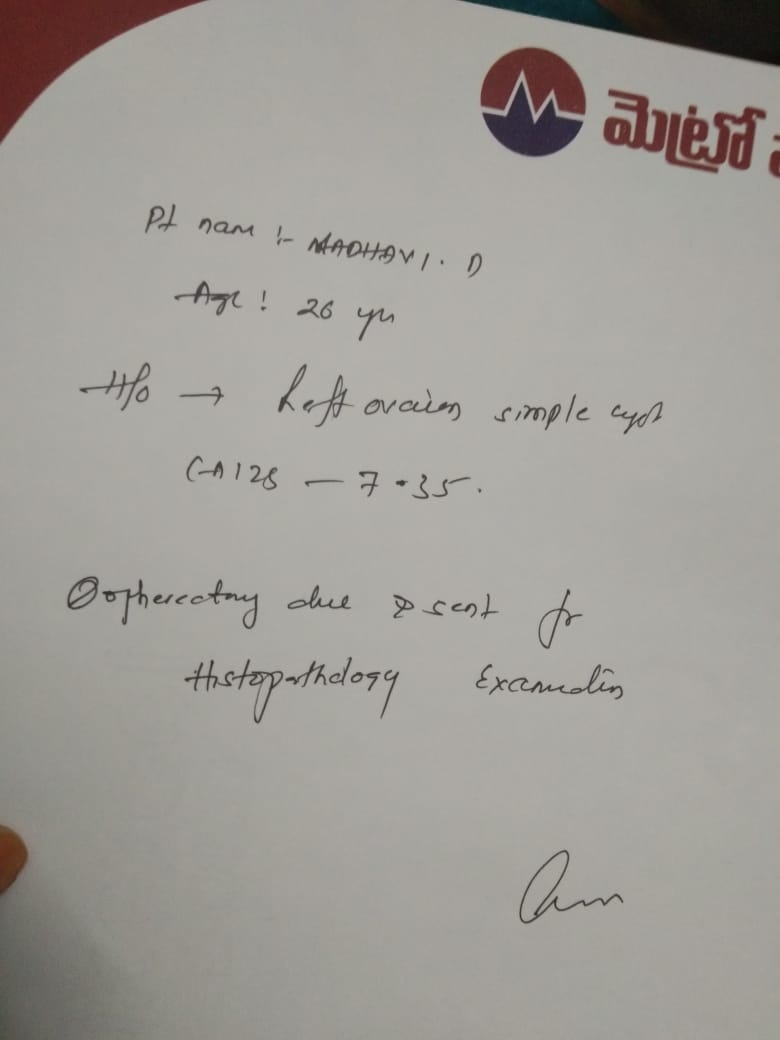 మెట్రో
Pt nam :- MADHAVI. D
Age : 26 yrs
H/o → Left ovarien simple cyst
CA125 — 7.35.
Oopherectomy due & sent for
Histopathology Examination